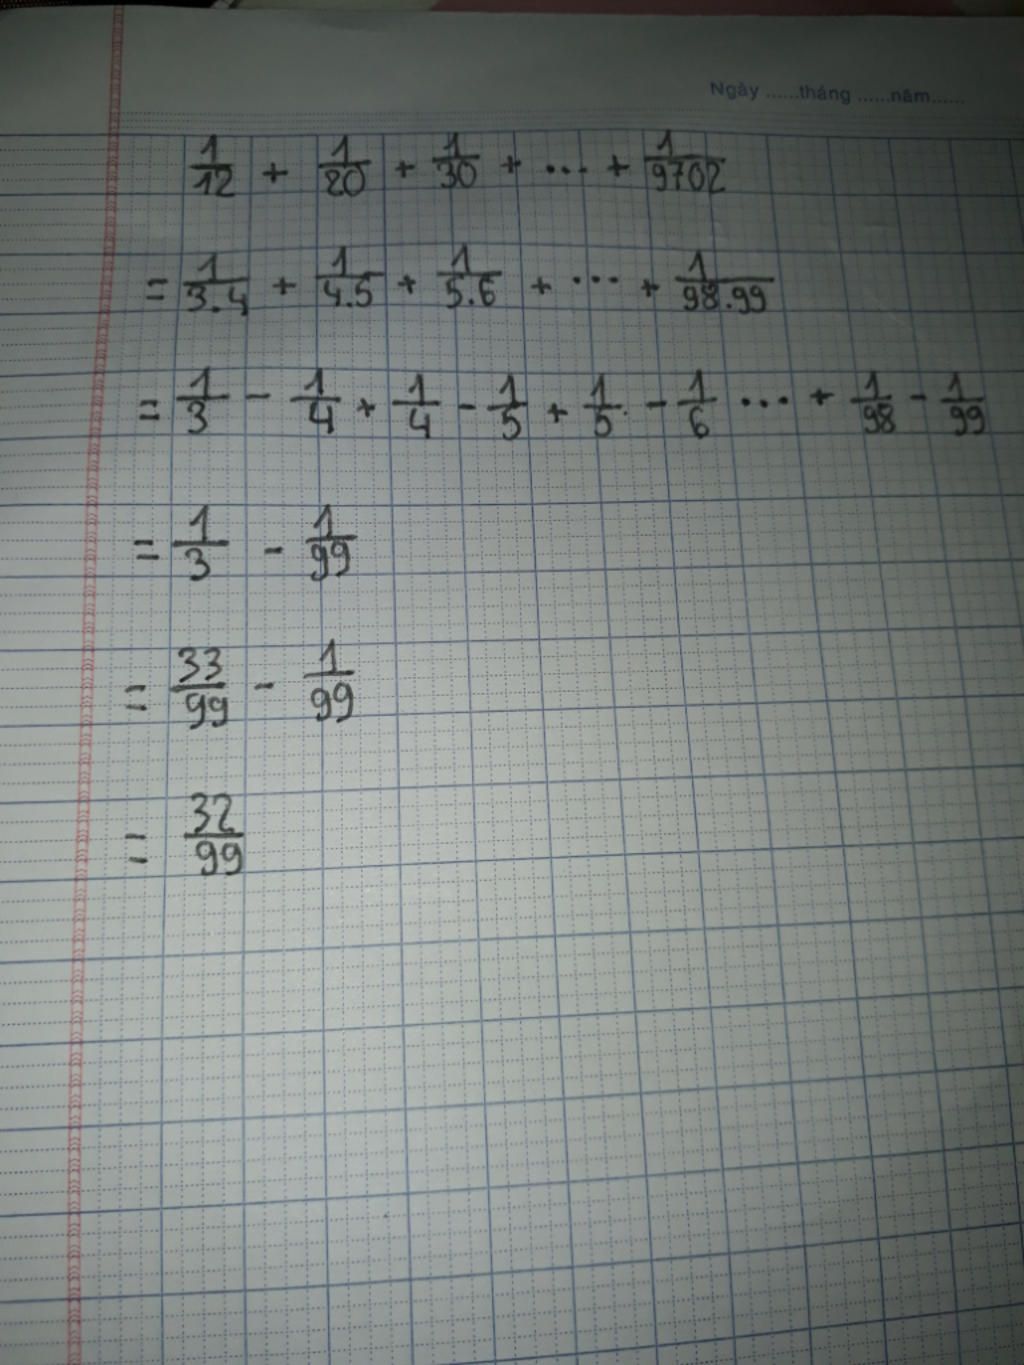 Ngày ......tháng ......năm......
1/12 + 1/20 + 1/30 + ... + 1/9702
= 1/3.4 + 1/4.5 + 1/5.6 + ... + 1/98.99
= 1/3 - 1/4 + 1/4 - 1/5 + 1/5 - 1/6 ... + 1/98 - 1/99
= 1/3 - 1/99
= 33/99 - 1/99
= 32/99